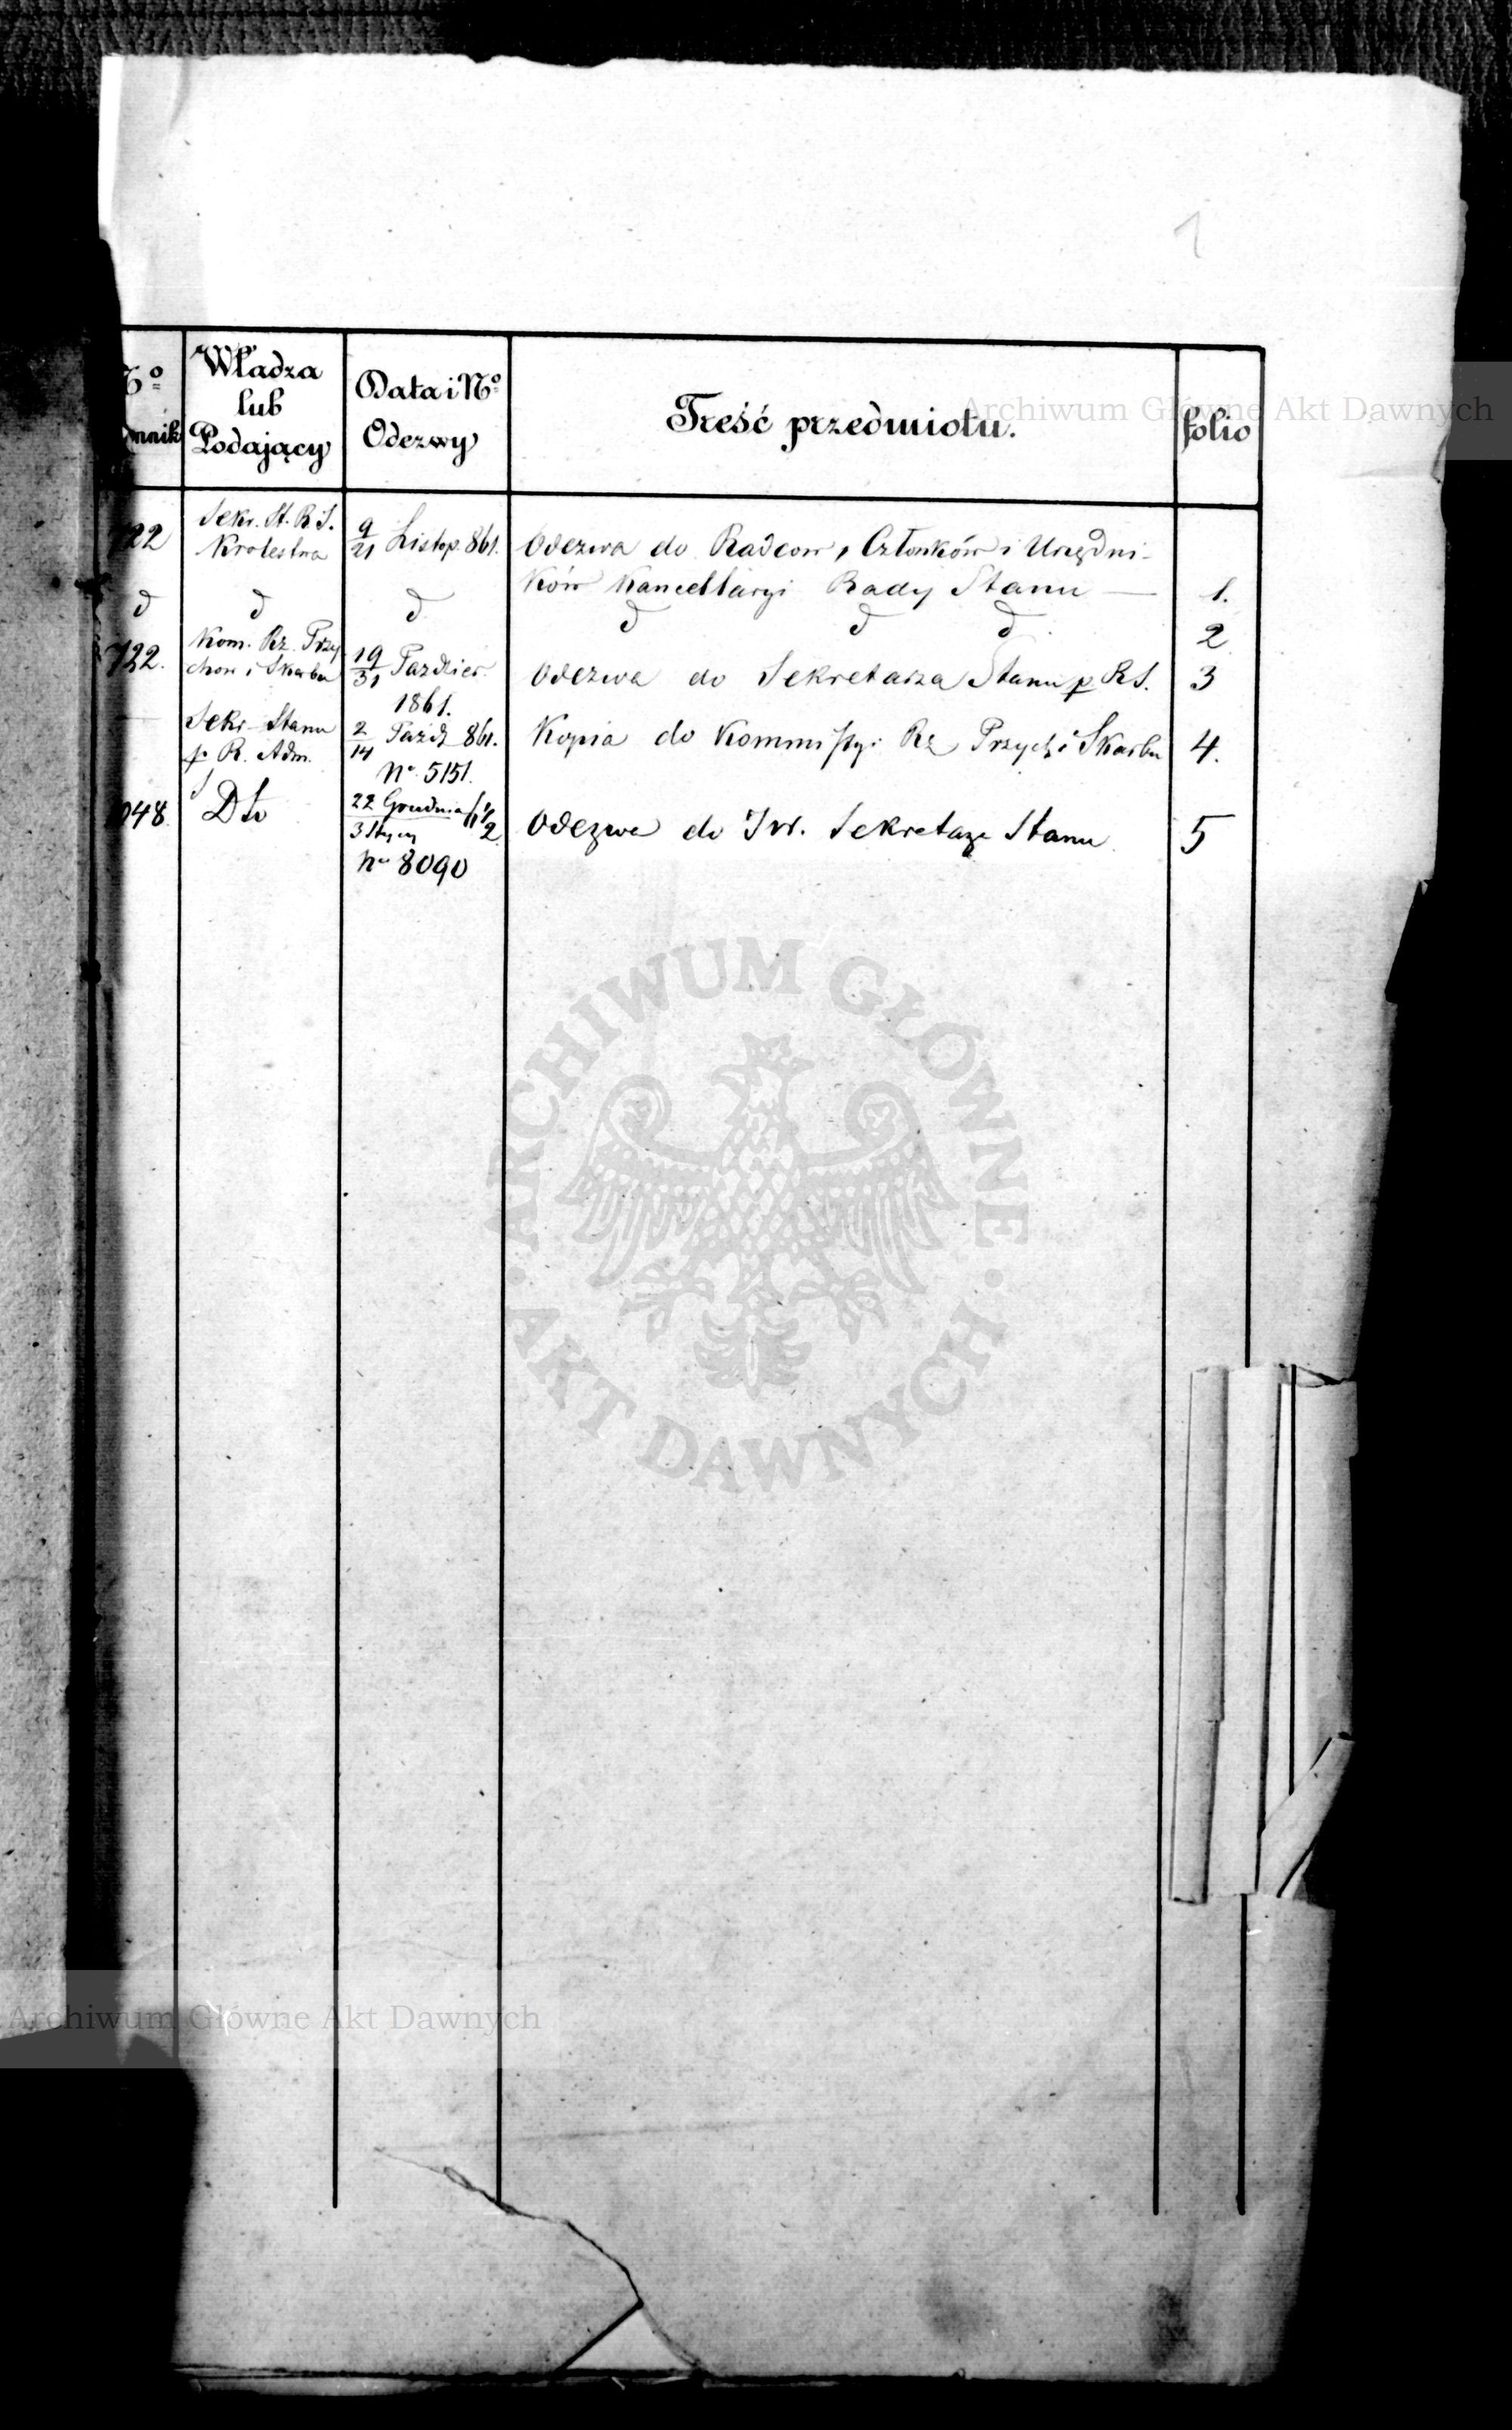 1
Nº Władza lub Podający Data i Nº Odezwy Treść przedmiotu. folio
722 Sekr. St. R. S. Krolestwa 9/21 Listop. 861. Odezwa do Radcow, Członków i Urzędni-
ków Kancellaryi Rady Stanu — 1.
d d d d d d 2
722. Kom. Rz. Przy
chow i Skarbu 19/31 Pazdzier. 1861. Odezwa do Sekretarza Stanu p. R S. 3
Sekr Stanu
p. R. Adm. 2/14 Pazdz 861. Nº 5151. Kopia do Kommissyi Rz Przych i Skarbu 4.
048. Dto 22 Grudnia/3 Stycz 61/2 Nº 8090 Odezwa do JW. Sekretarza Stanu 5
Archiwum Główne Akt Dawnych
ARCHIWUM GŁÓWNE
AKT DAWNYCH
Archiwum Główne Akt Dawnych